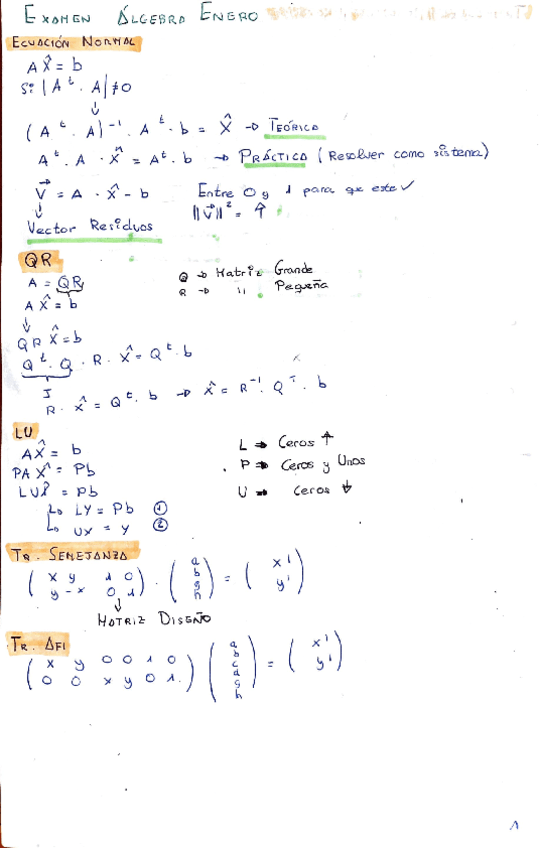 EXAMEN ÁLGEBRA ENERO
ECUACIÓN NORMAL
A X̂ = b
Si |Aᵗ · A| ≠ 0
↓
(Aᵗ · A)⁻¹ · Aᵗ · b = X̂ → TEÓRICO
Aᵗ · A · X̂ = Aᵗ · b → PRÁCTICO (Resolver como sistema)
V⃗ = A · X̂ - b Entre 0 y 1 para que este ✓
↓ ||V⃗||² = ↑
Vector Residuos
QR
A = QR Q → Matriz Grande
A X̂ = b R → " Pequeña
↓
Q R X̂ = b
Qᵗ · Q · R · X̂ = Qᵗ · b
I
R · X̂ = Qᵗ · b → X̂ = R⁻¹ · Qᵀ · b
LU
A X̂ = b L → Ceros ↑
PA X̂ = Pb P → Ceros y Unos
LU X̂ = Pb U → Ceros ↓
↳ LY = Pb ①
↳ UX = Y ②
TR. SEMEJANZA
(x y 1 0 / y -x 0 1) · (a b g h) = (x' y')
↓
MATRIZ DISEÑO
TR. AFI
(x y 0 0 1 0 / 0 0 x y 0 1) (a b c d g h) = (x' y')
1